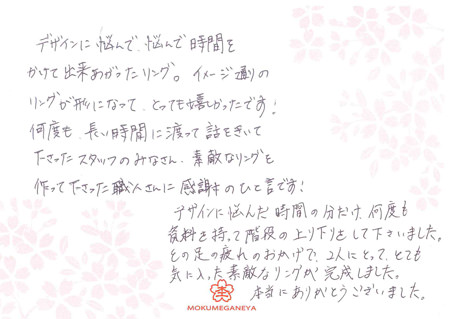 デザインに悩んで、悩んで時間を
かけて出来あがったリング。イメージ通りの
リングが形になって、とっても嬉しかったです!
何度も、長い時間に渡って話をきいて
下さったスタッフのみなさん、素敵なリングを
作って下さった職人さんに感謝のひと言です!
デザインに悩んだ時間の分だけ、何度も
資料を持って階段の上り下りをして下さいました。
その足の疲れのおかげで、2人にとって、とても
気に入った素敵なリングが完成しました。
本当にありがとうございました。
MOKUMEGANEYA